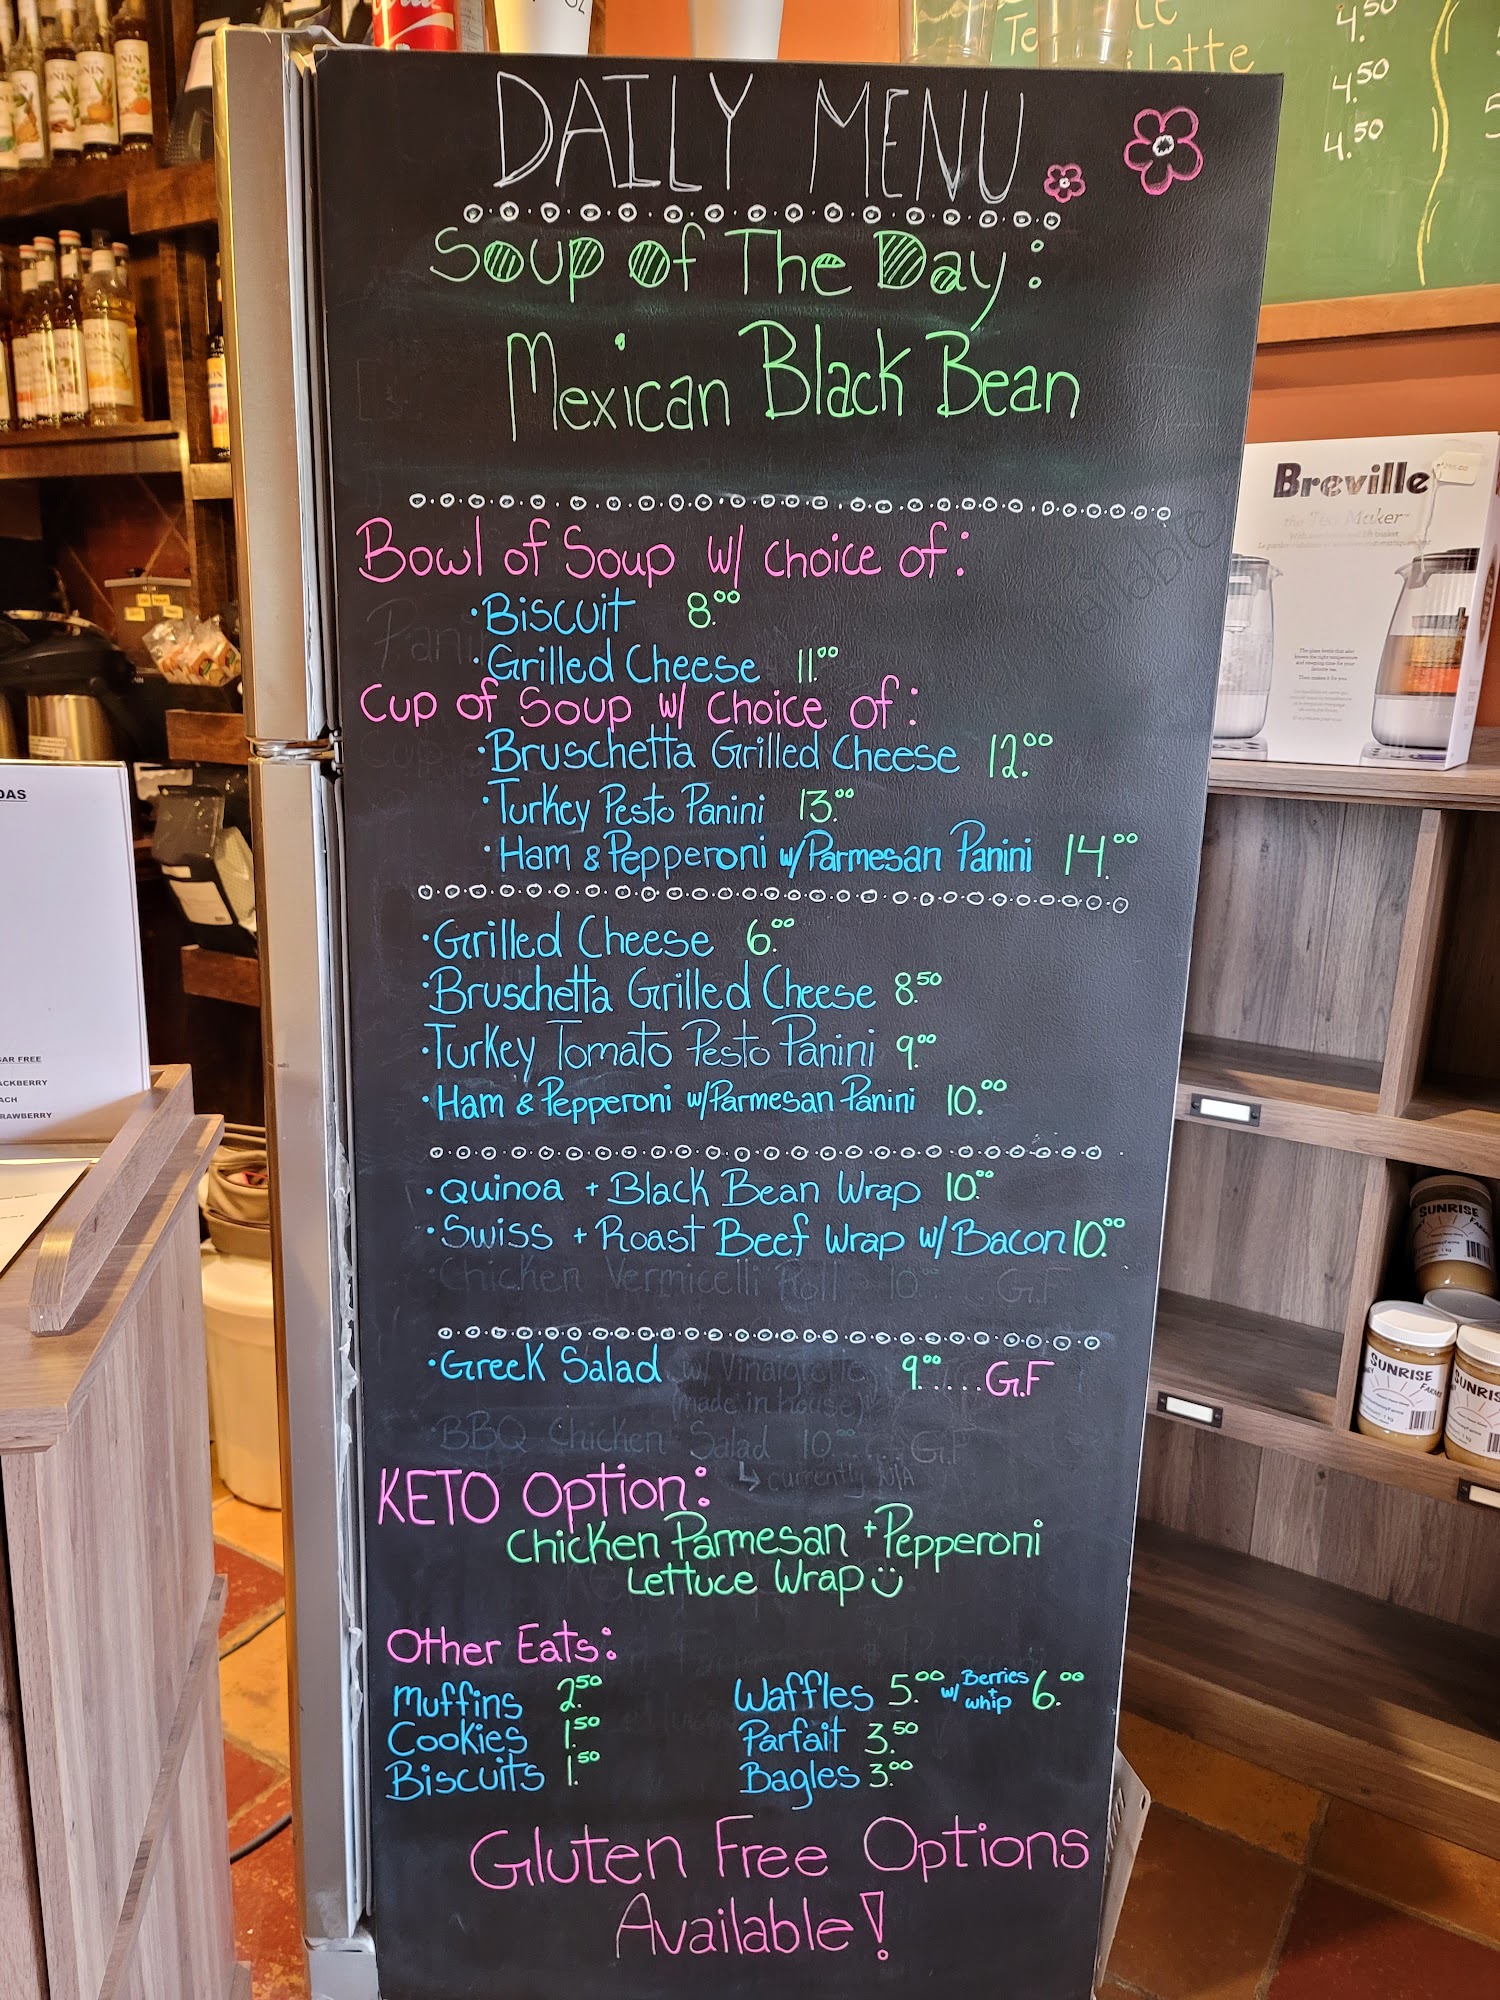 Te
Latte
4.50
4.50
4.50
DAILY MENU
Soup of The Day:
Mexican Black Bean
Bowl of Soup w/ choice of:
·Biscuit 8.00
·Grilled Cheese 11.00
Cup of Soup w/ Choice of:
·Bruschetta Grilled Cheese 12.00
·Turkey Pesto Panini 13.00
·Ham & Pepperoni w/Parmesan Panini 14.00
·Grilled Cheese 6.00
·Bruschetta Grilled Cheese 8.50
·Turkey Tomato Pesto Panini 9.00
·Ham & Pepperoni w/Parmesan Panini 10.00
·Quinoa + Black Bean Wrap 10.00
·Swiss + Roast Beef Wrap w/Bacon 10.00
·Chicken Vermicelli Roll 10.00 .... G.F
·Greek Salad w/ Vinaigrette 9.00.....G.F
(made in house)
·BBQ Chicken Salad 10.00.... G.F
↳ currently N/A
KETO Option:
Chicken Parmesan + Pepperoni
Lettuce Wrap
Other Eats:
Muffins 2.50
Cookies 1.50
Biscuits 1.50
Waffles 5.00 w/ Berries + whip 6.00
Parfait 3.50
Bagles 3.00
Gluten Free Options
Available!
Breville
the Tea Maker™
SUNRISE
SUNRISE
FARMS
SUNRIS
DAS
AR FREE
ACKBERRY
ACH
RAWBERRY